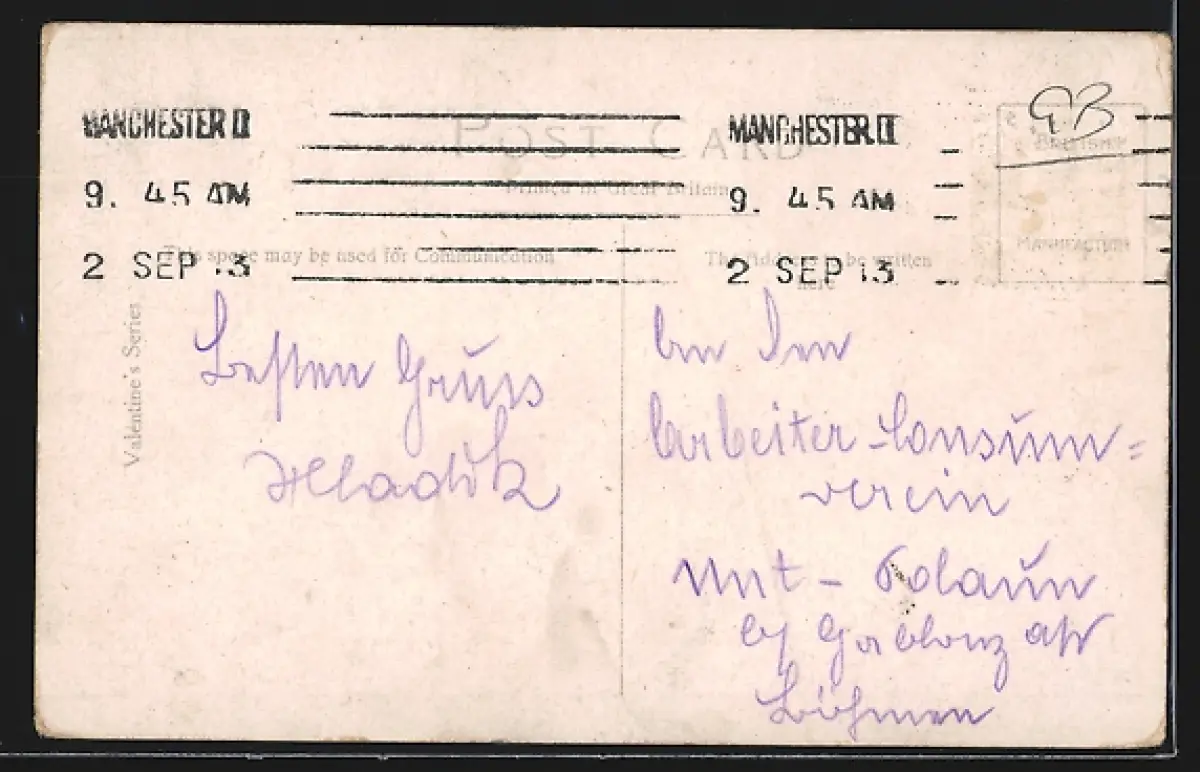 GB
MANCHESTER II
9. 45 AM
2 SEP 13
MANCHESTER II
9. 45 AM
2 SEP 13
POST CARD
Printed in Great Britain
BRITISH
MANUFACTURE
This space may be used for Communication
The Address to be written
here
Valentine's Series
Besten Gruss
Hladik
An Den
Arbeiter-Consum=
verein
Unt - Polaun
b/ Gablonz a/N
Böhmen